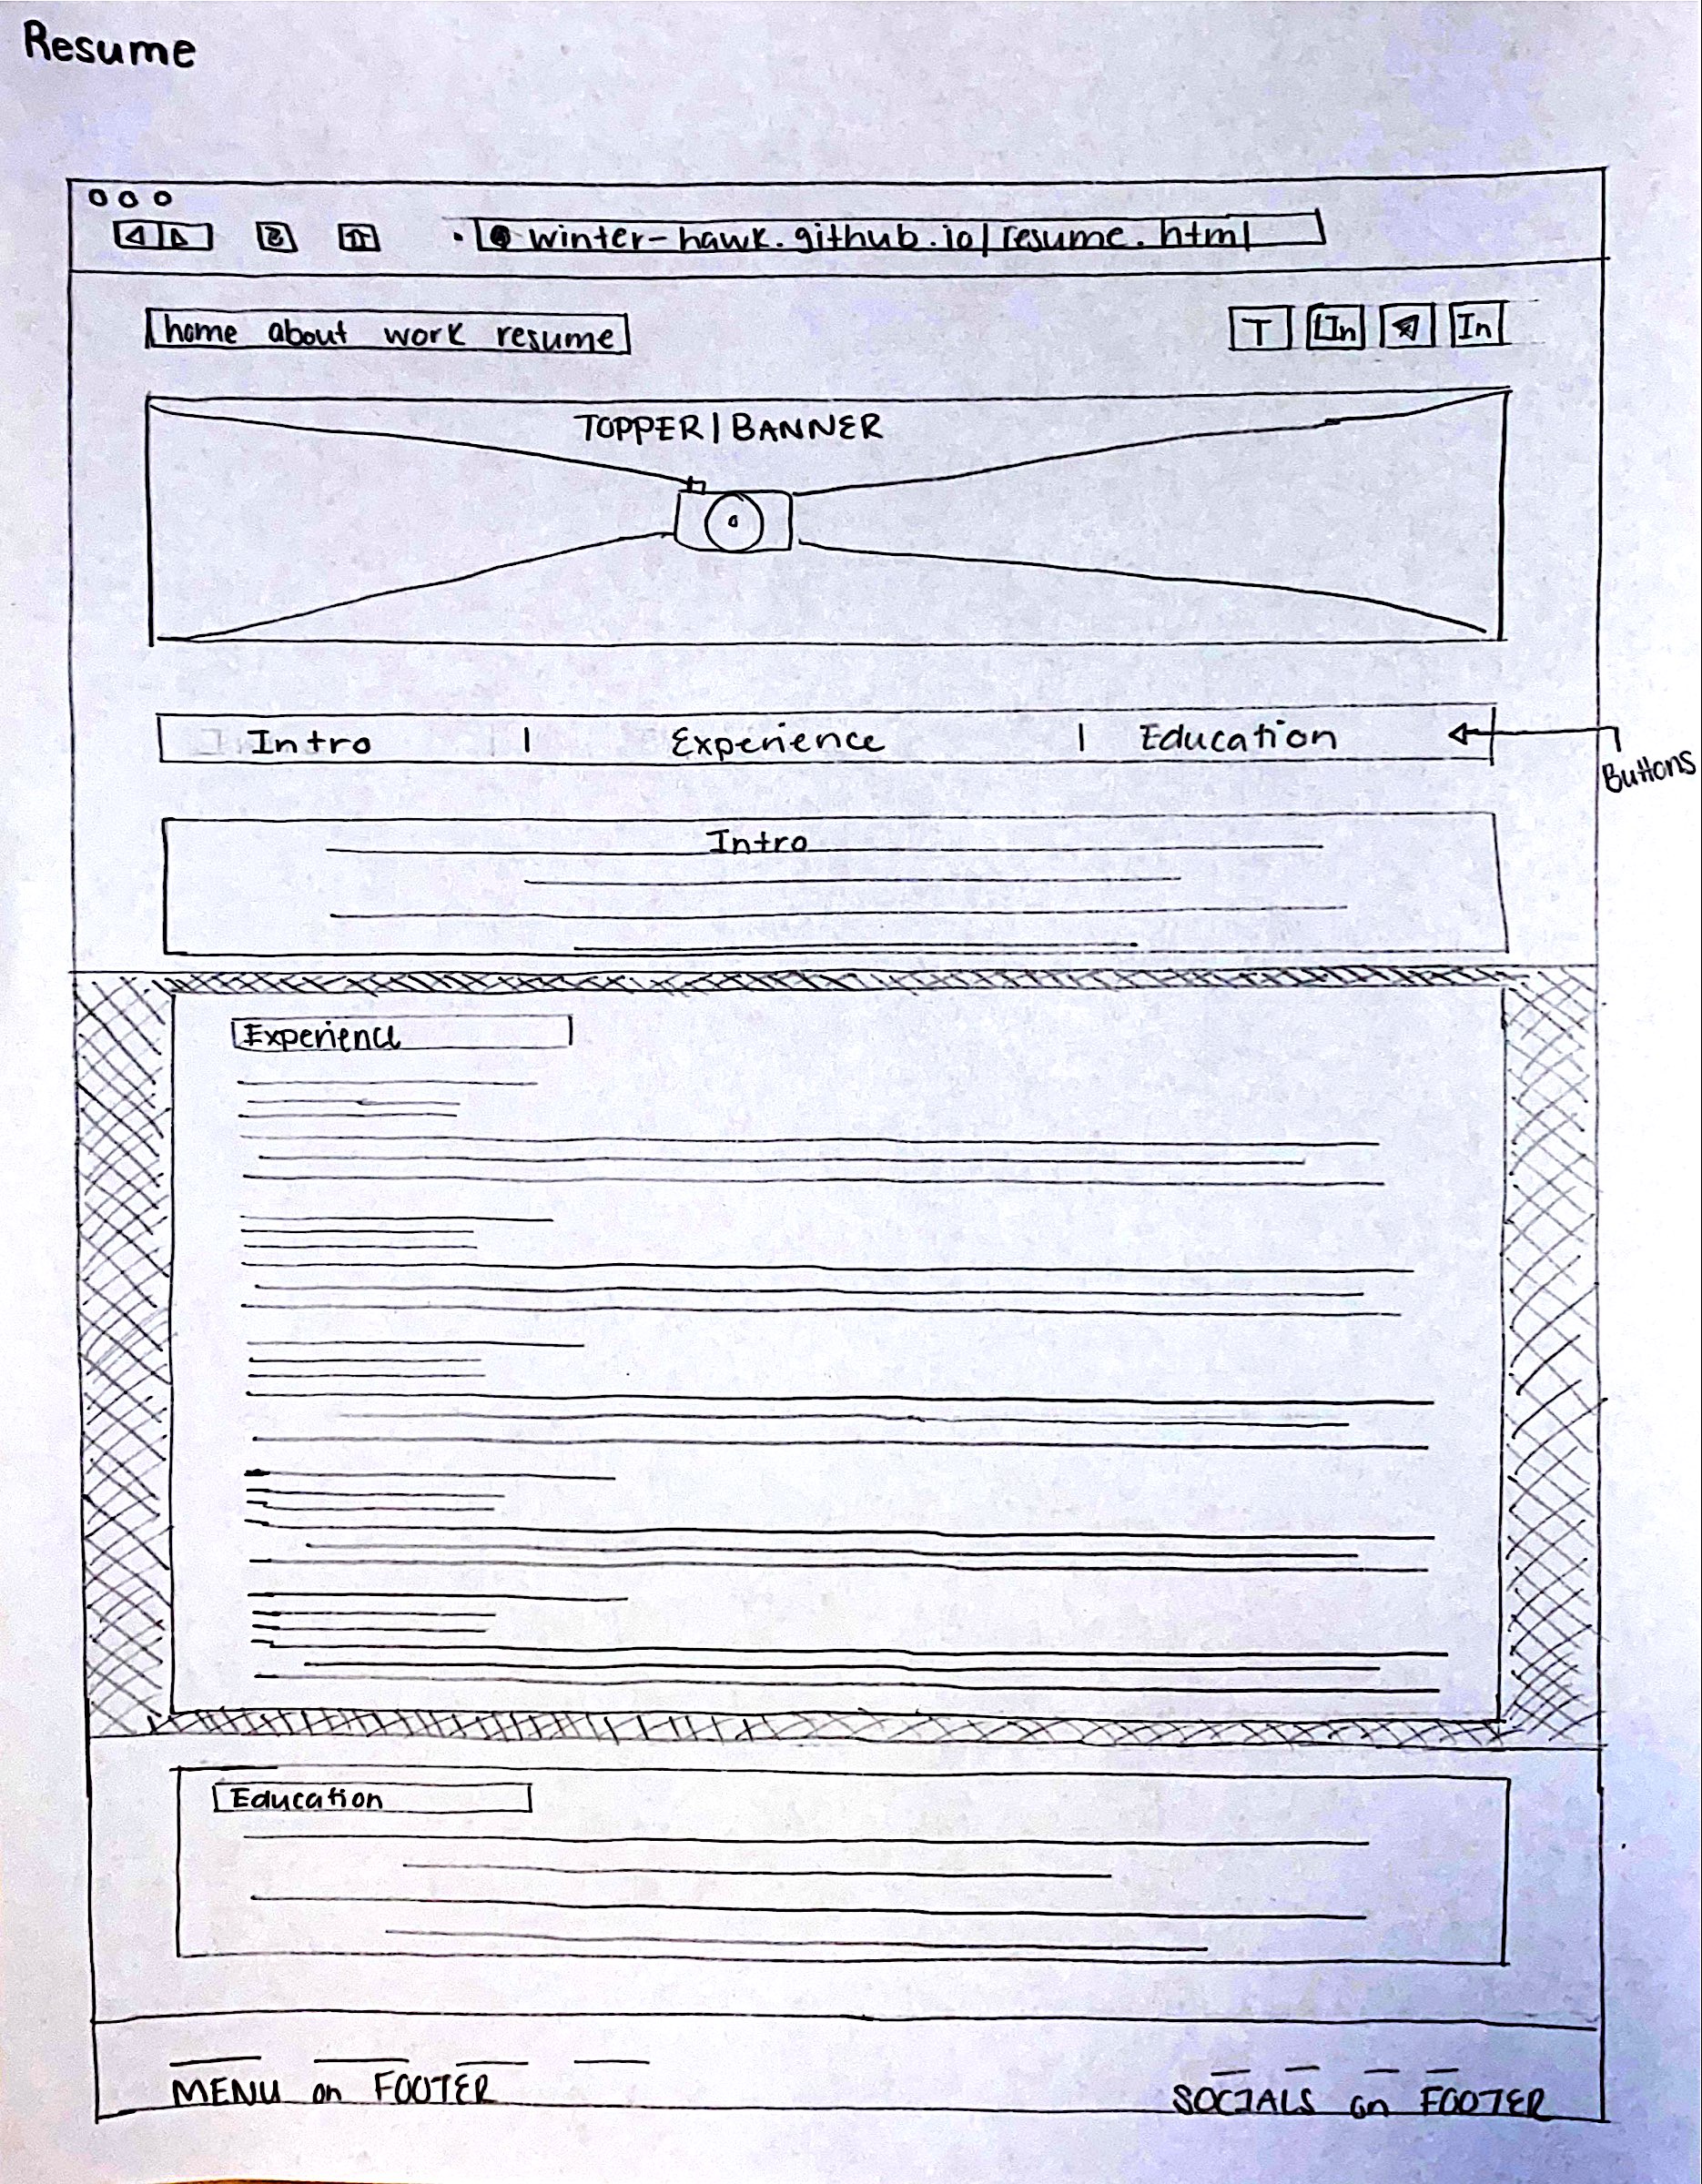 Resume
winter-hawk.github.io/resume.html
home about work resume
T LIn In
TOPPER | BANNER
Intro | Experience | Education
Buttons
Intro
Experience
Education
MENU on FOOTER
SOCIALS on FOOTER